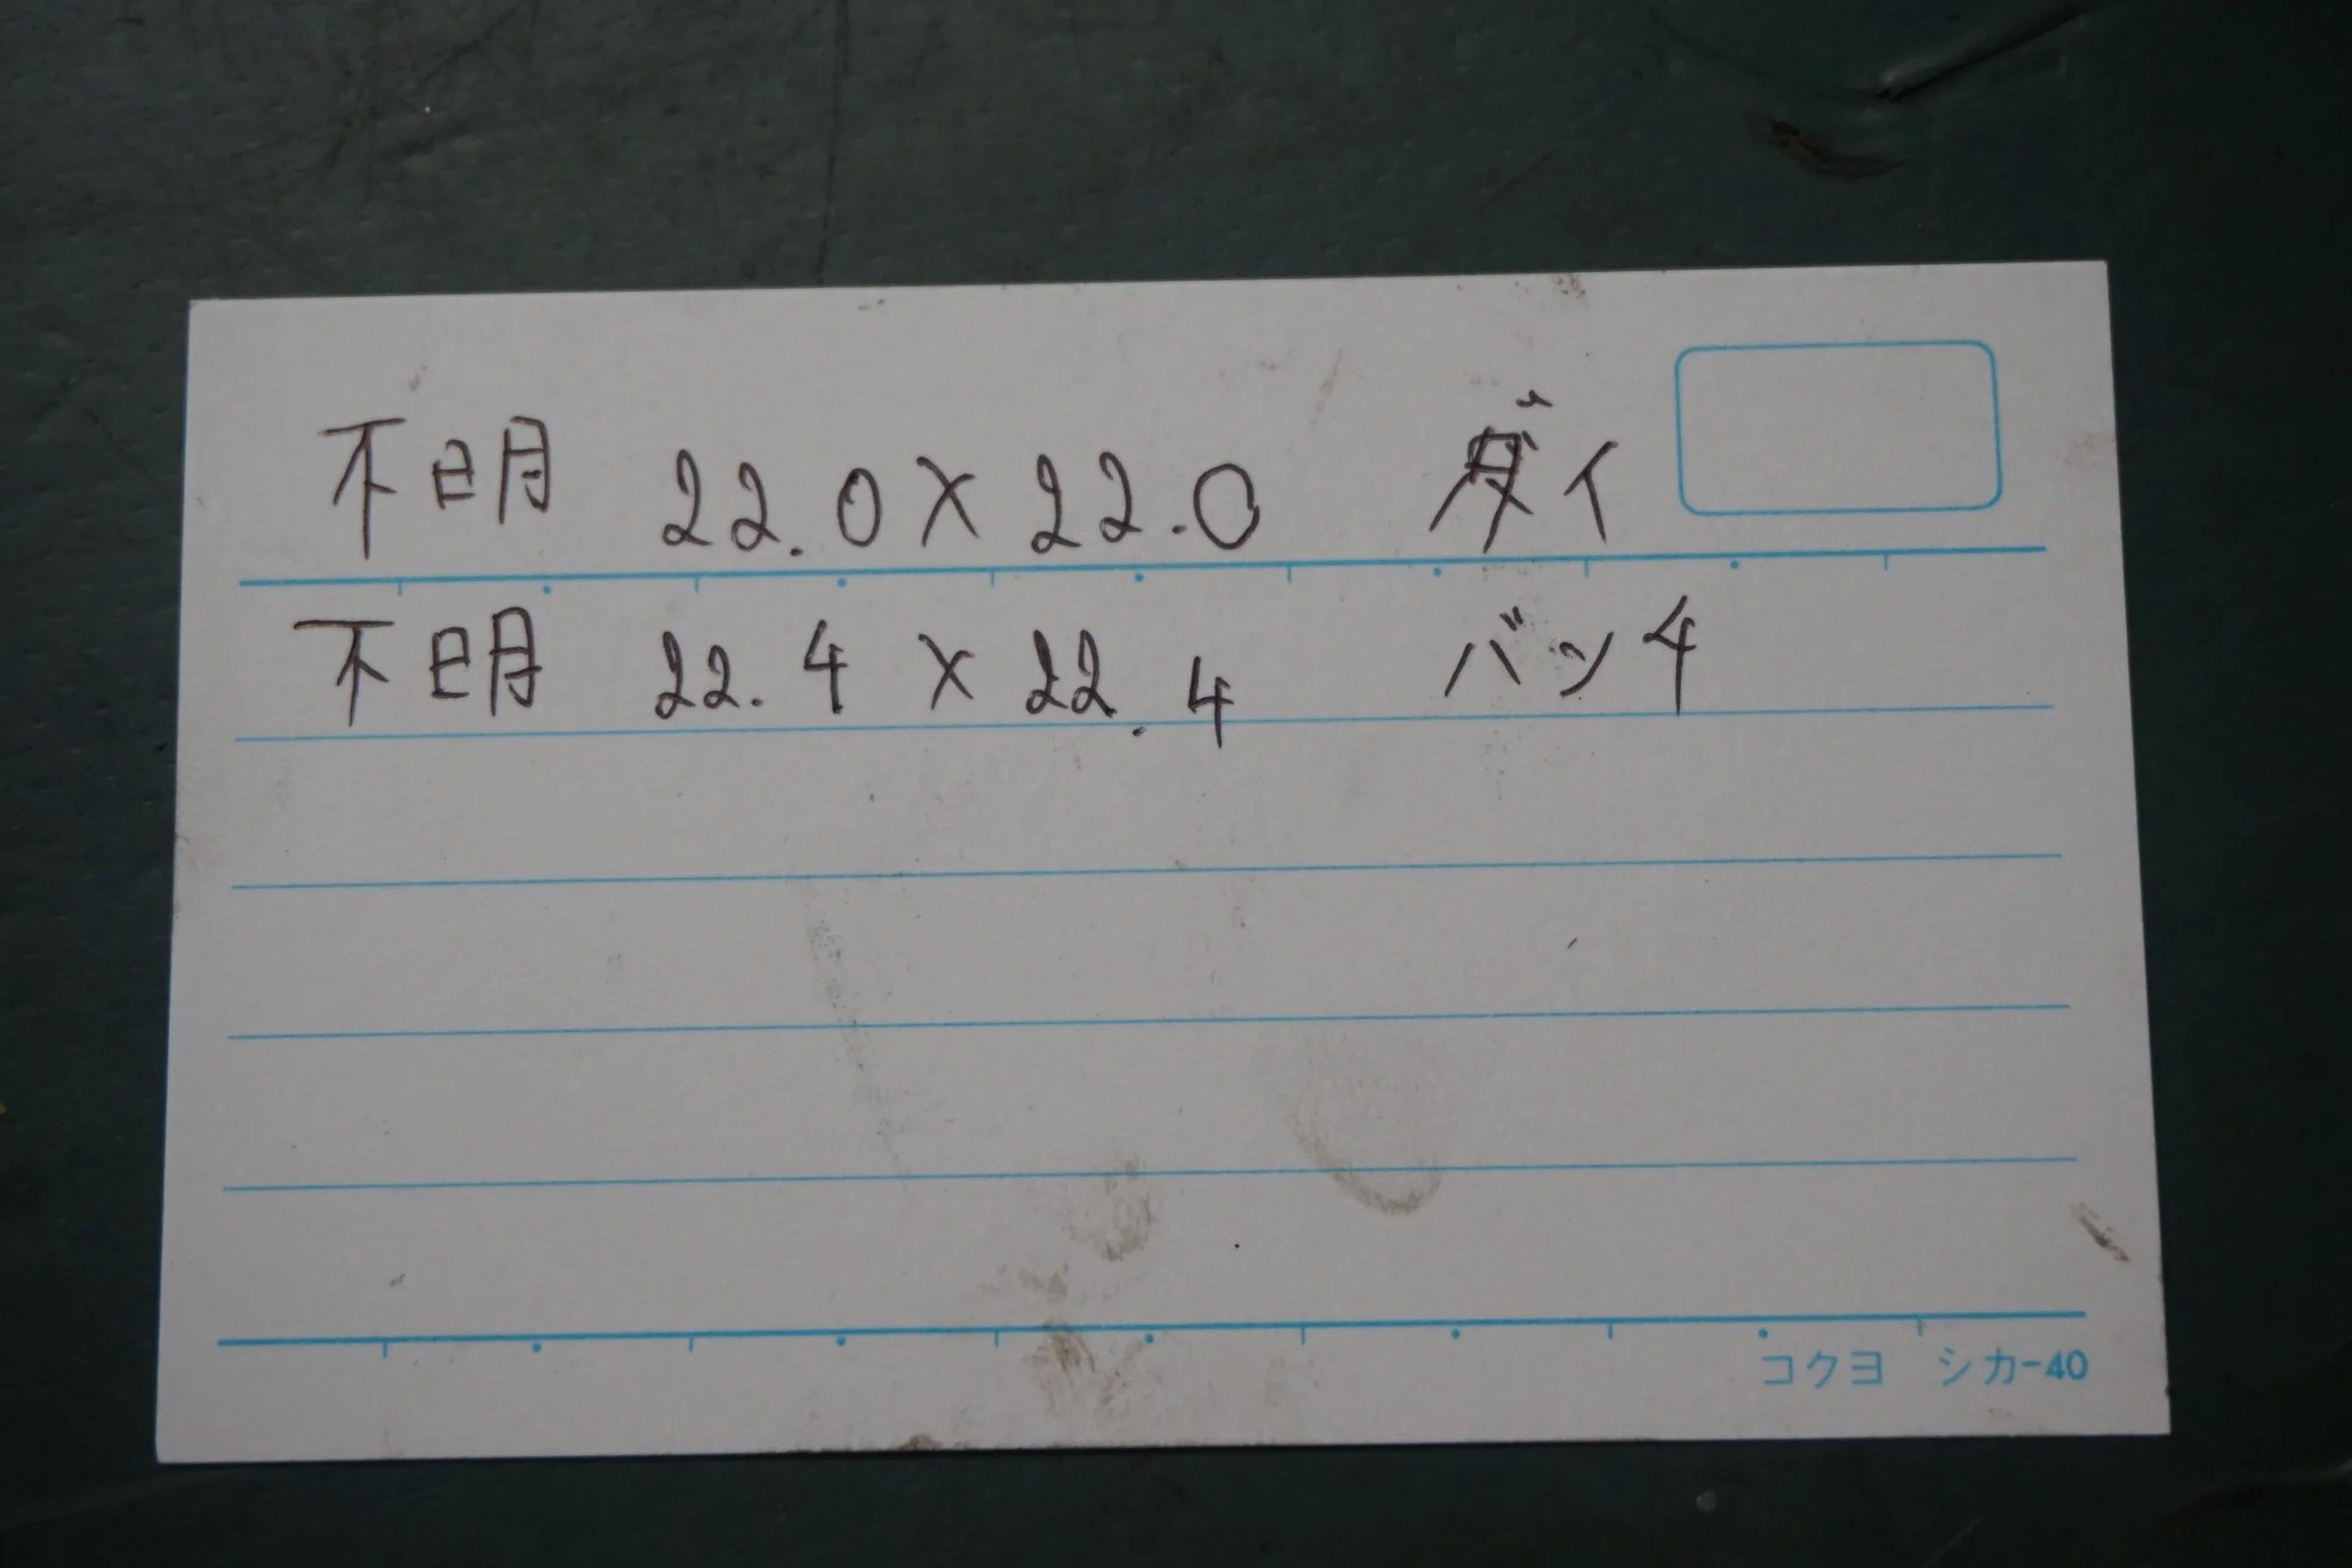 不明 22.0×22.0 ダイ
不明 22.4×22.4 バンチ
コクヨ シカ-40